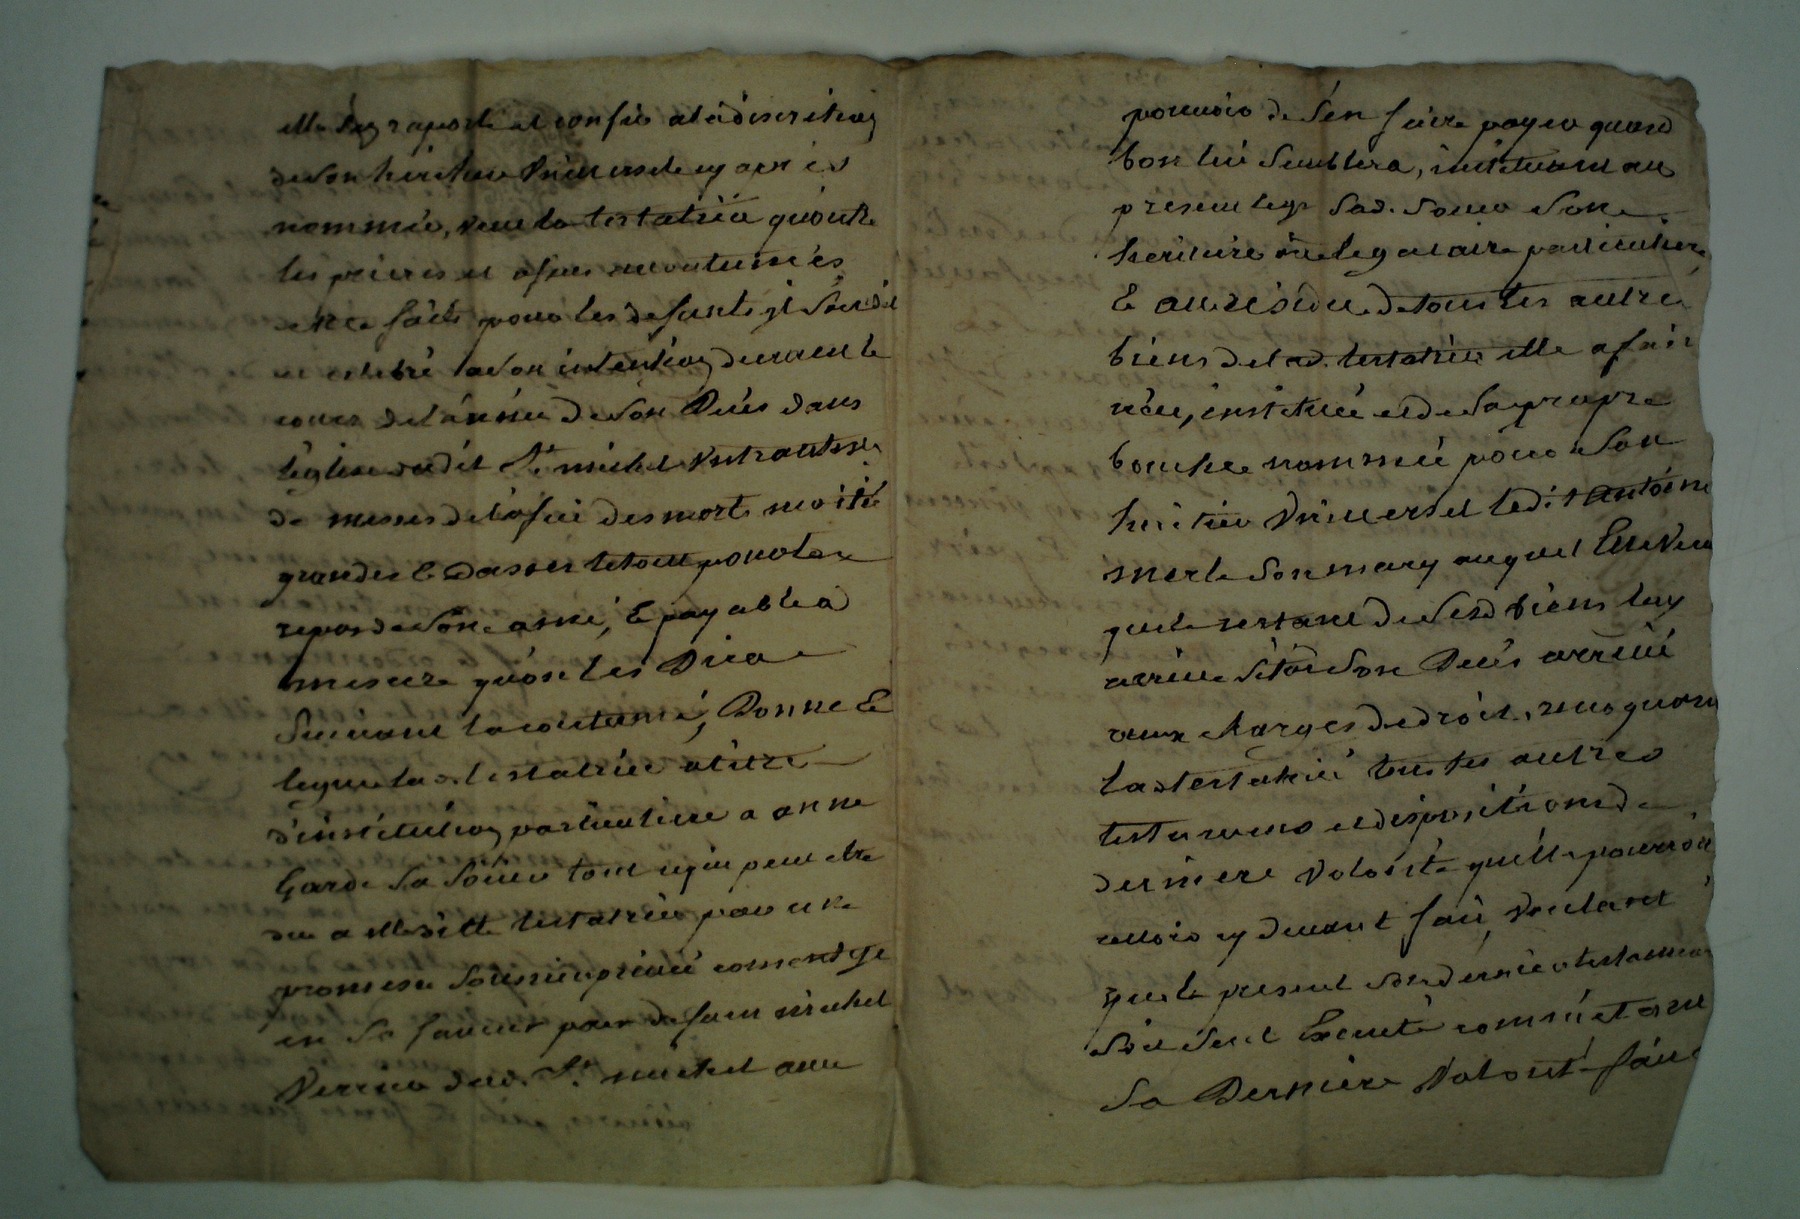 elle s'en raporte et confie a la discretion
de son héritier universel cy apres
nommé, veut la testatrice qu'outre
les prieres et ofices accoutumés
etre faits pour les defunts il soit dit
et celebré a son intention durant le
cours de l'année de son decés dans
l'eglise dudit St michel
de messes de l'ofice des morts moitié
grandes & basses le tout pour le
repos de son ame, & payable a
mesure qu'on les dira
suivant la coutume, Donne &
legue lad. testatrice a titre
d'institution particuliere a anne
Garde sa soeur tout ce qui peut etre
du a elle ditte testatrice par une
promesse sousein privé consentye
en sa faveur par defunt michel
Verrier dud. St michel avec
pouvoir de s'en faire payer quand
bon lui semblera, instituant au
present legs sad. soeur son
heritiere ou legataire particuliere
& au residu de tous les autres
biens de lad. testatrice elle a fait
créé, institué et de sa propre
bouche nommé pour son
heritier universel ledit antoine
merle son mary auquel Elle veut
que le restant de sesd biens luy
arrive sitôt son decés arrivé
aux charges de droit, revoquant
lad testatrice tous les autres
testamens et dispositions de
derniere volonté qu'elle pourroit
avoir cy devant fait, voulant
que le present son dernier testament
soit seul Executé comme etant
sa derniere volonté fait